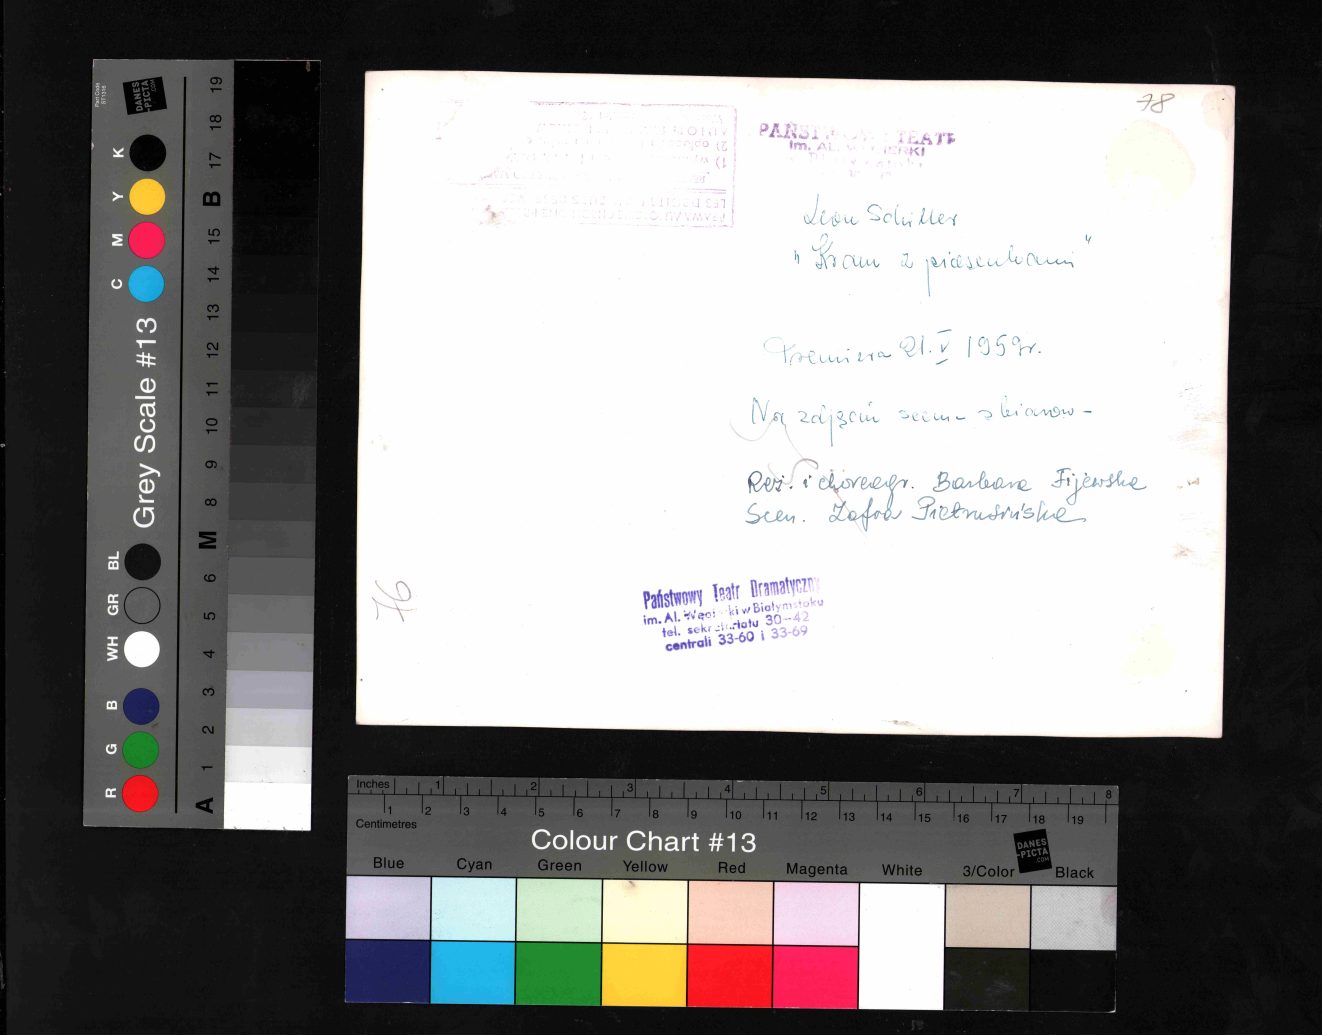 Part Code
ST1316
DANES
-PICTA
.COM
K
Y
M
C
Grey Scale #13
BL
GR
WH
B
G
R
19
18
17
B
15
14
13
12
11
10
9
8
M
6
5
4
3
2
1
A
78
TEATR
im. AL.
Leon Schiller
"Kram z piosenkami"
Premiera 21.V 1959r.
Na zdjęciu scena zbiorow-
Reż. i choreogr. Barbara Fijewska
Scen. Zofia Pietrusińska
76
Państwowy Teatr Dramatyczny
im. Al. Węgierki w Białymstoku
tel. sekretariatu 30-42
centrali 33-60 i 33-69
Inches 1 2 3 4 5 6 7 8
1 2 3 4 5 6 7 8 9 10 11 12 13 14 15 16 17 18 19
Centimetres
Colour Chart #13
DANES
-PICTA
.COM
Blue Cyan Green Yellow Red Magenta White 3/Color Black